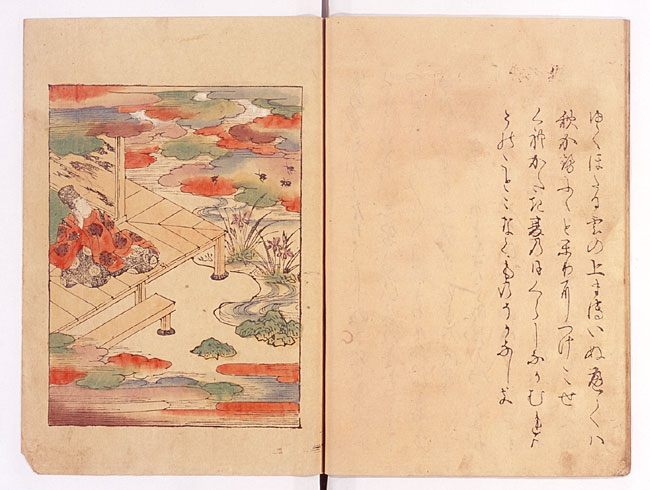 ゆくほたる雲の上まていぬへくハ
秋かせふくとかりにつけこせ
くれかたき夏の日くらしなかむれハ
そのことゝなくものそかなしき